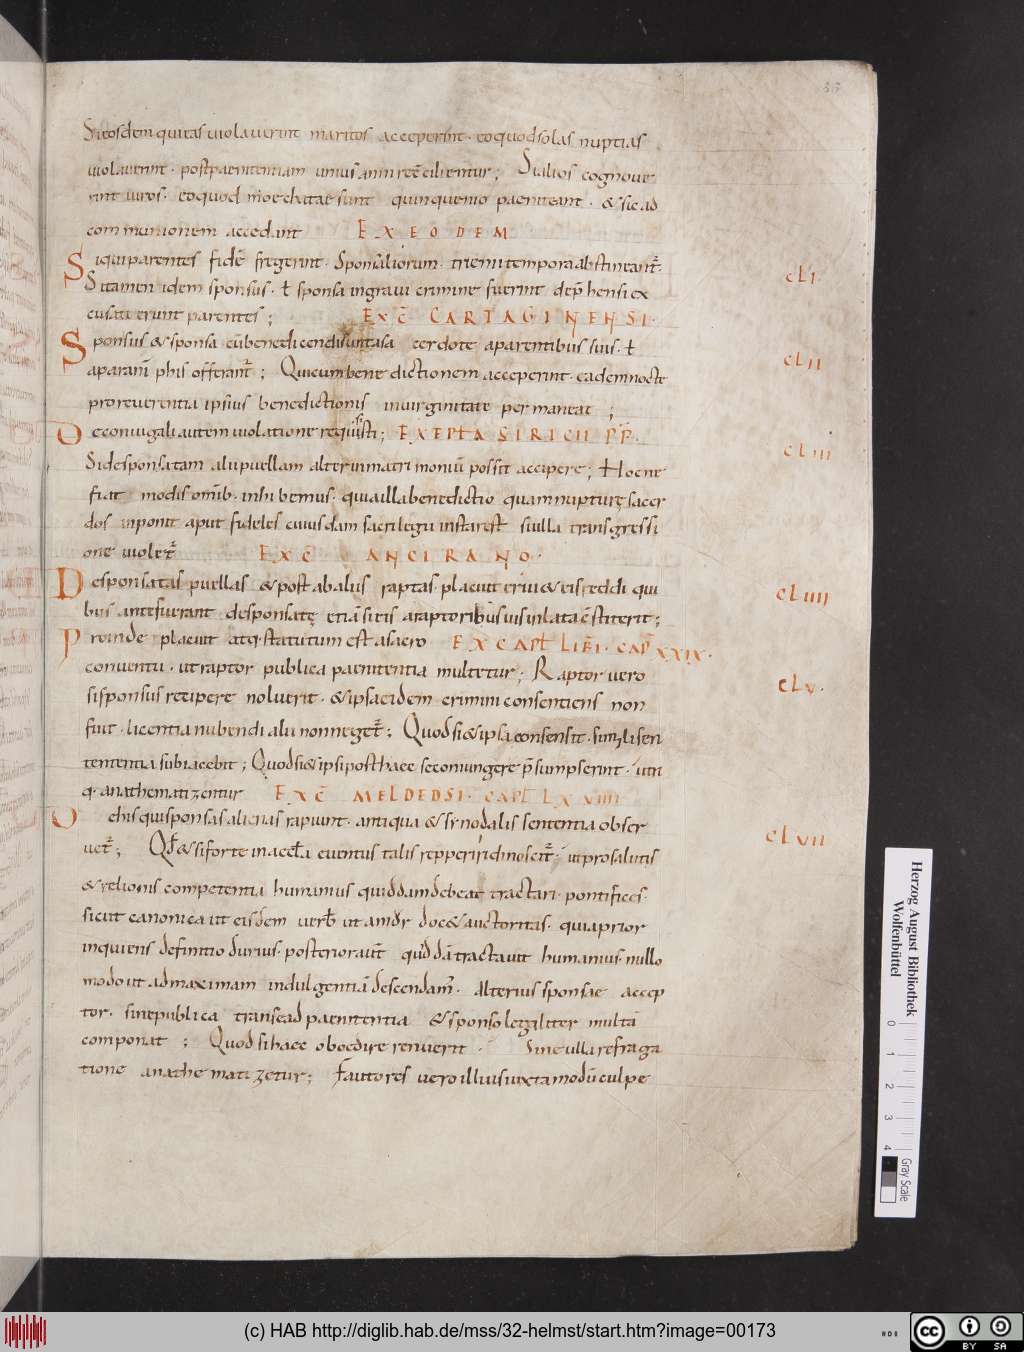 Si eosdem qui eas uiolauerint maritos acceperint · eo quod solas nuptias
uiolauerint · post paenitentiam unius anni recc̄ilientur ; Si alios cognoue
rint uiros · eo quod moechatae sunt quinquenio paeniteant · & sic ad
communionem accedant EX EODEM
Siqui parentes fidē fregerint · sponsaliorum · triennii tempora abstineant ·
Si tamen idem sponsus · ł sponsa in graui crimine fuerint dep̄hensi ex
cusati erunt parentes ; EXC̄ CARTAGINENSI ·
Sponsus & sponsa cū benedicendi sunt a sa cerdote a parentibus suis · ł
a paranīphis offerant ; Qui cum benedictionem acceperint · eadem nocte
pro reuerentia ipsius benedictionis in uirginitate permaneat ;
De coniugali autem uiolatione requisisti ; EXEPŁA SIRICII PP̄ ·
Si desponsatam alii puellam alter in matrimoniū possit accipere ; Hoc ne
fiat modis omīb · inhibemus · quia illa benedictio quam nupturę sacer
dos inponit aput fideles cuiusdam sacrilegii instar est si ulla transgressi
one uiolet EXC̄ ANCIRANO ·
Desponsatas puellas & post ab aliis raptas · placuit erui & eis reddi qui
bus ante fuerant desponsatę etiā si eis a raptoribus uis inlata cōstiterit ;
Proinde placuit atq · statutum est a sacro EX CAPŁ LIB̄I · CAP XXIX ·
conuentu · ut raptor publica paenitentia multetur ; Raptor uero
si sponsus recipere noluerit · & ipsa eidem crimini consentiens non
fuit · licentia nubendi alii non neget ; Quod si & ipsa consensit · simili sen
tententia subiacebit ; Quod si & ipsi post haec se coniungere p̄sumpserint · utri
q · anathematizentur EXC̄ MELDEDSI · CAPŁ LXVIIII
De his qui sponsas alienas rapiunt · antiqua & synodalis sententia obser
uet ; Qd̄ & si forte in aecła euentus talis repperiri dinoscit · ut pro salutis
& relionis competentia humanius quiddam debeat tractari · pontifices ·
sicut canonica ut eisdem uerb ut amur doc& auctoritas · quia prior
inquiens definitio durius · posterior aut quiddā tractauit humanius · nullo
modo ut ad maximam indulgentiā descendam · Alterius sponsae accep
tor · sine publica transead paenitentia & sponso legaliter multā
componat ; Quod si haec oboedire renuerit · Sine ulla refraga
tione anathematizetur ; Fautores uero illius iuxta modū culpe
CLI ·
CLII
CLIII
CLIIII
CLV ·
CLVII
Herzog August Bibliothek
Wolfenbüttel
0 1 2 3 4
Gray Scale
(c) HAB http://diglib.hab.de/mss/32-helmst/start.htm?image=00173
HAB
CC BY SA